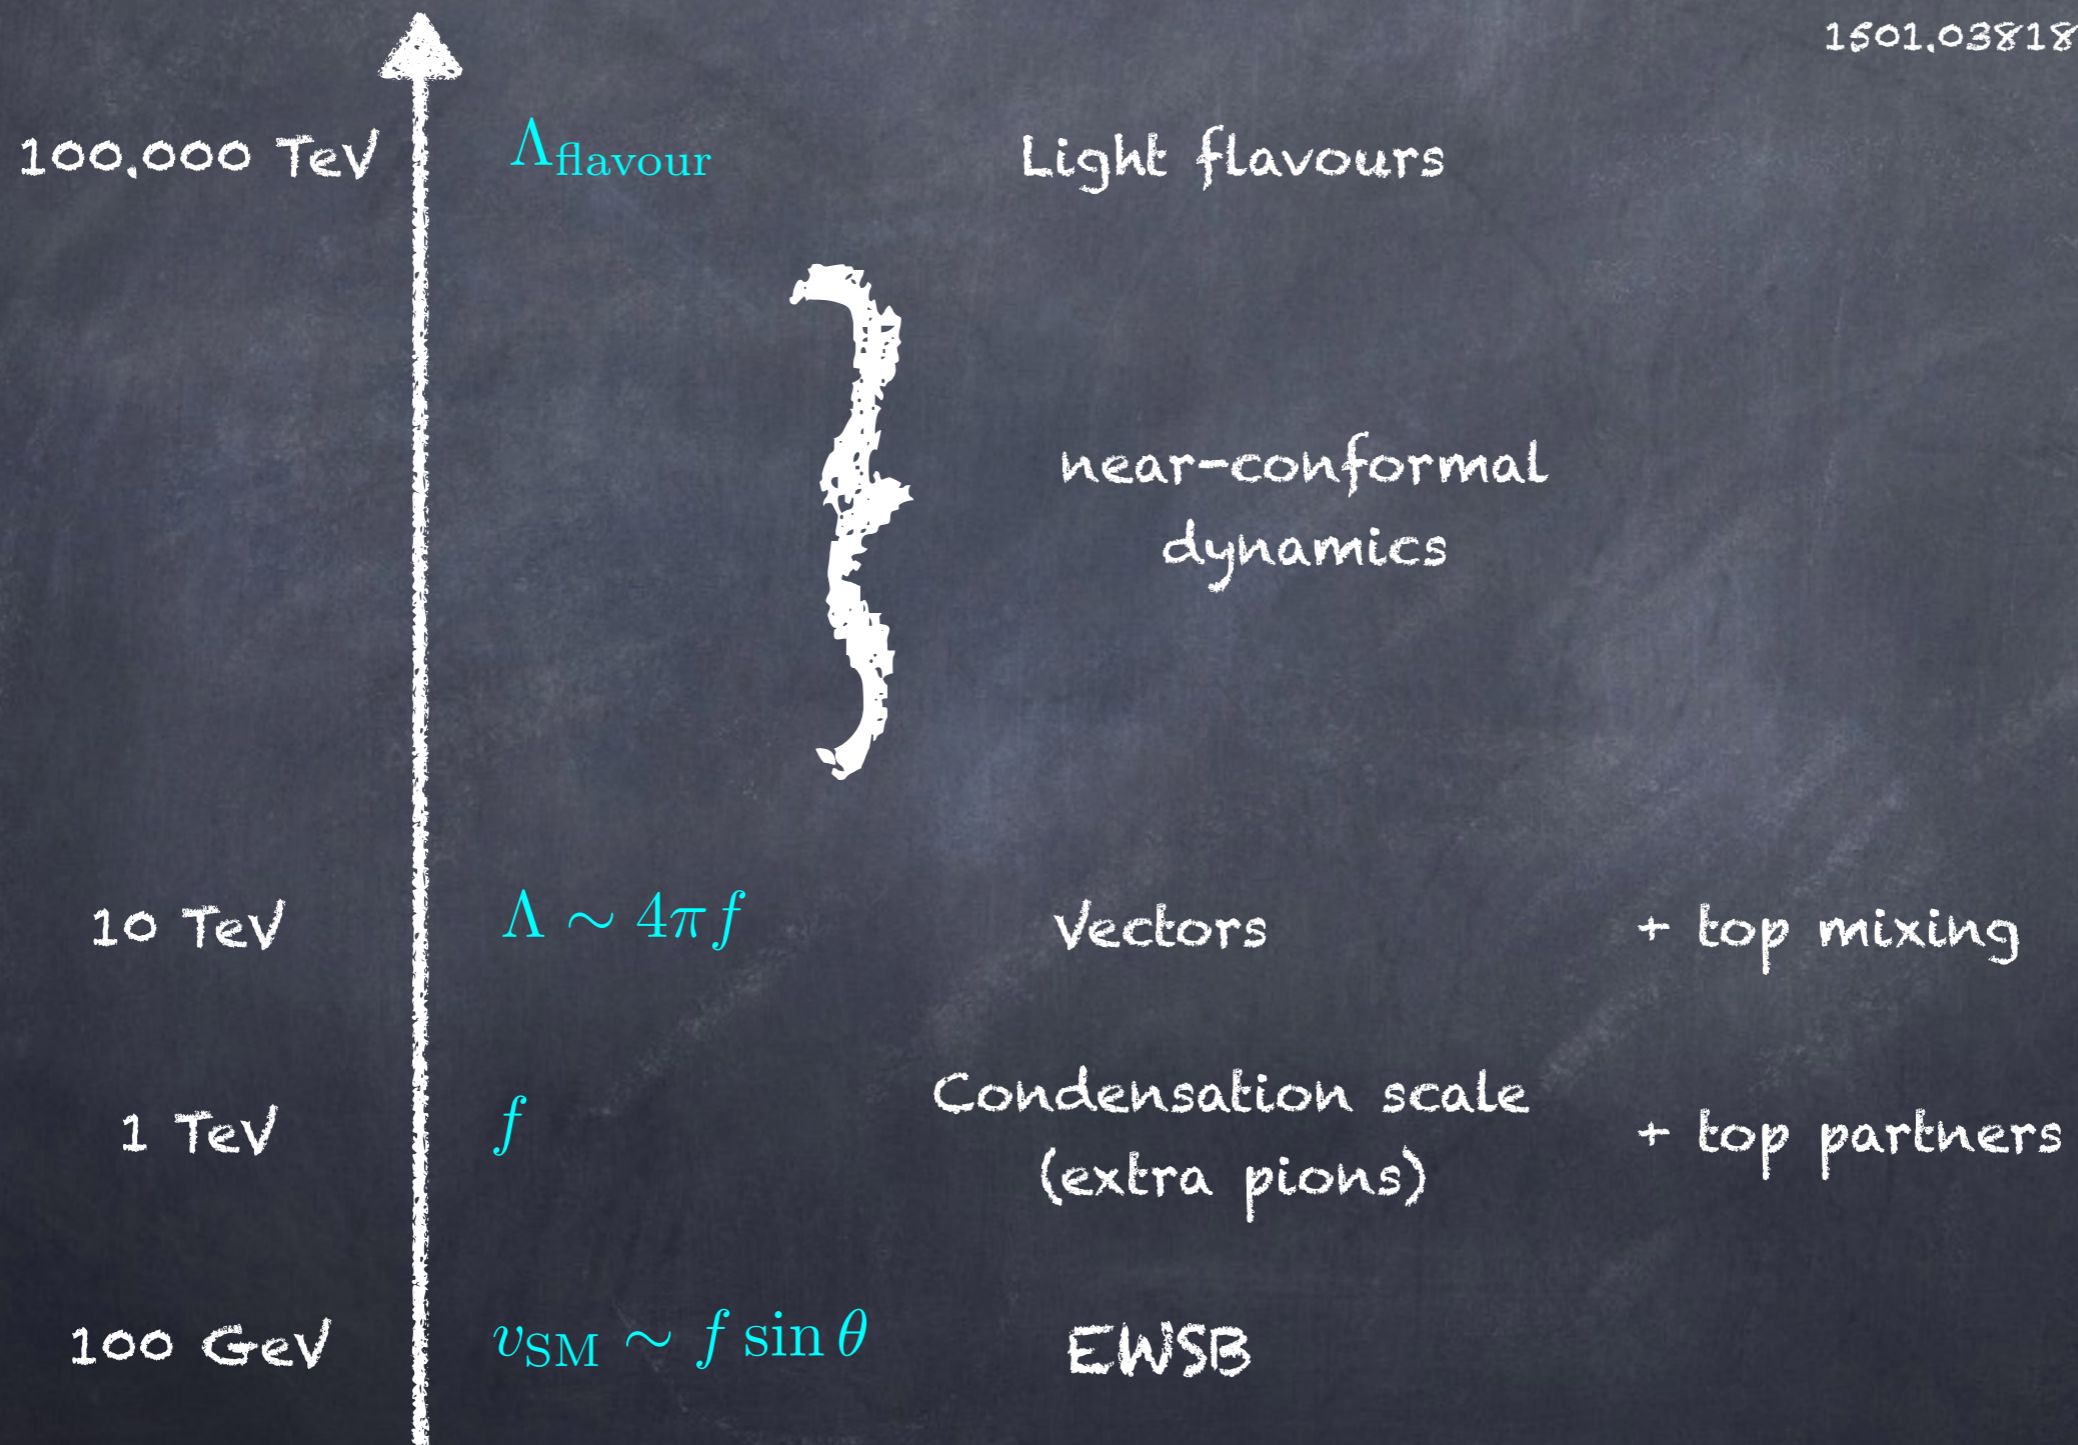 1501.03818
100.000 TeV Λ_flavour Light flavours
near-conformal
dynamics
10 TeV Λ ∼ 4πf Vectors + top mixing
1 TeV f Condensation scale + top partners
(extra pions)
100 GeV v_SM ∼ f sin θ EWSB